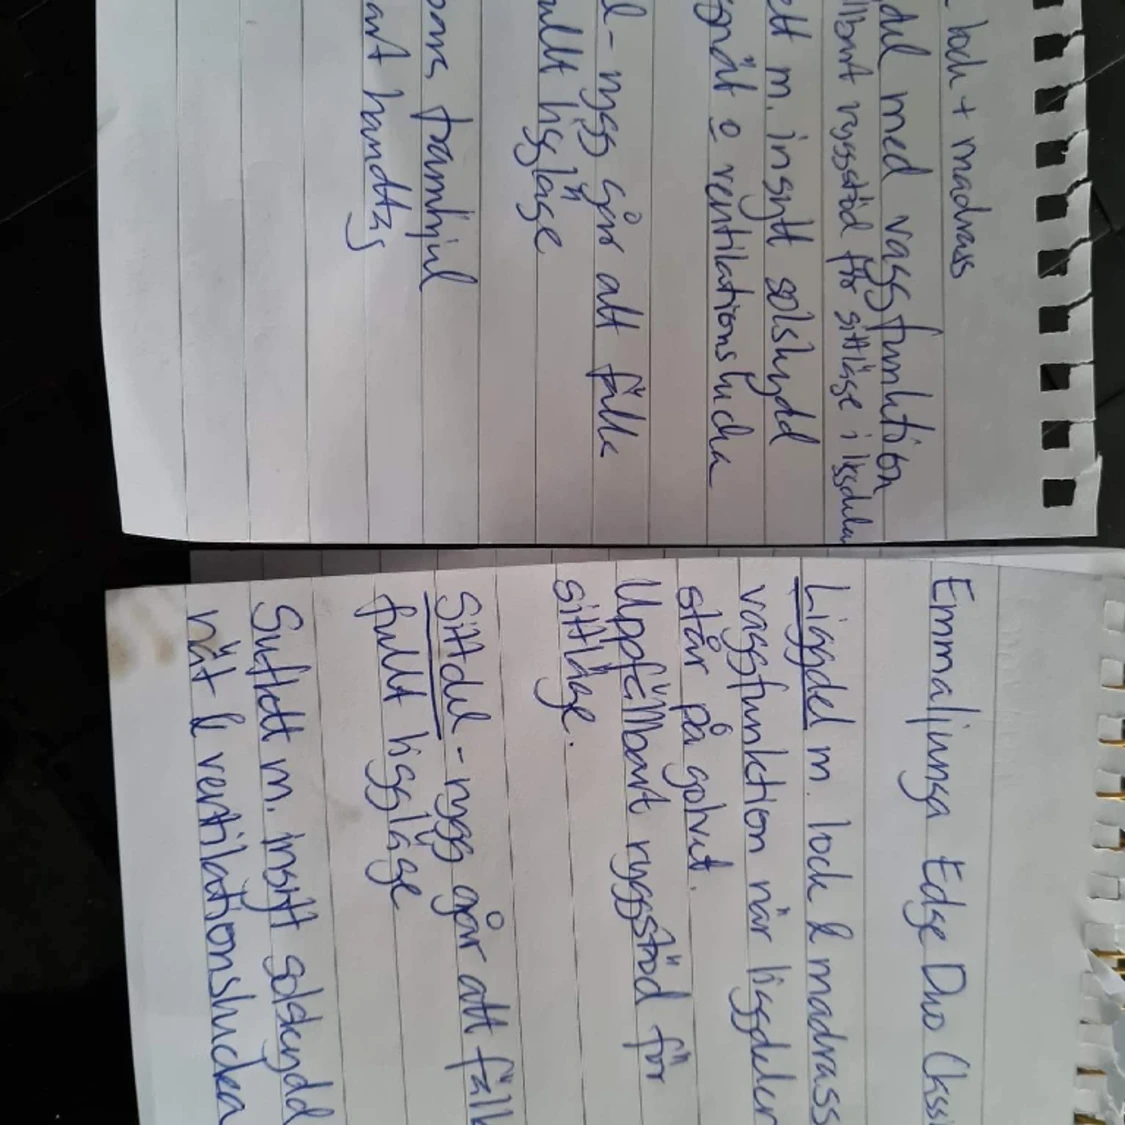 loch + madrass
del med vaggfunktion
llbart ryggstöd för sittläge i liggdelen
ett m. insytt solskydd
snät o ventilationslucka
l - rygg går att fälla
fullt liggläge
framhjul
art handtag
Emmaljunga Edge Duo Classi
Liggdel m. lock & madrass
vaggfunktion när liggdelen
står på golvet.
Uppfällbart ryggstöd för
sittläge.
Sittdel - rygg går att fäll
fullt liggläge
Sufflett m. insytt solskydd
nät & ventilationslucka